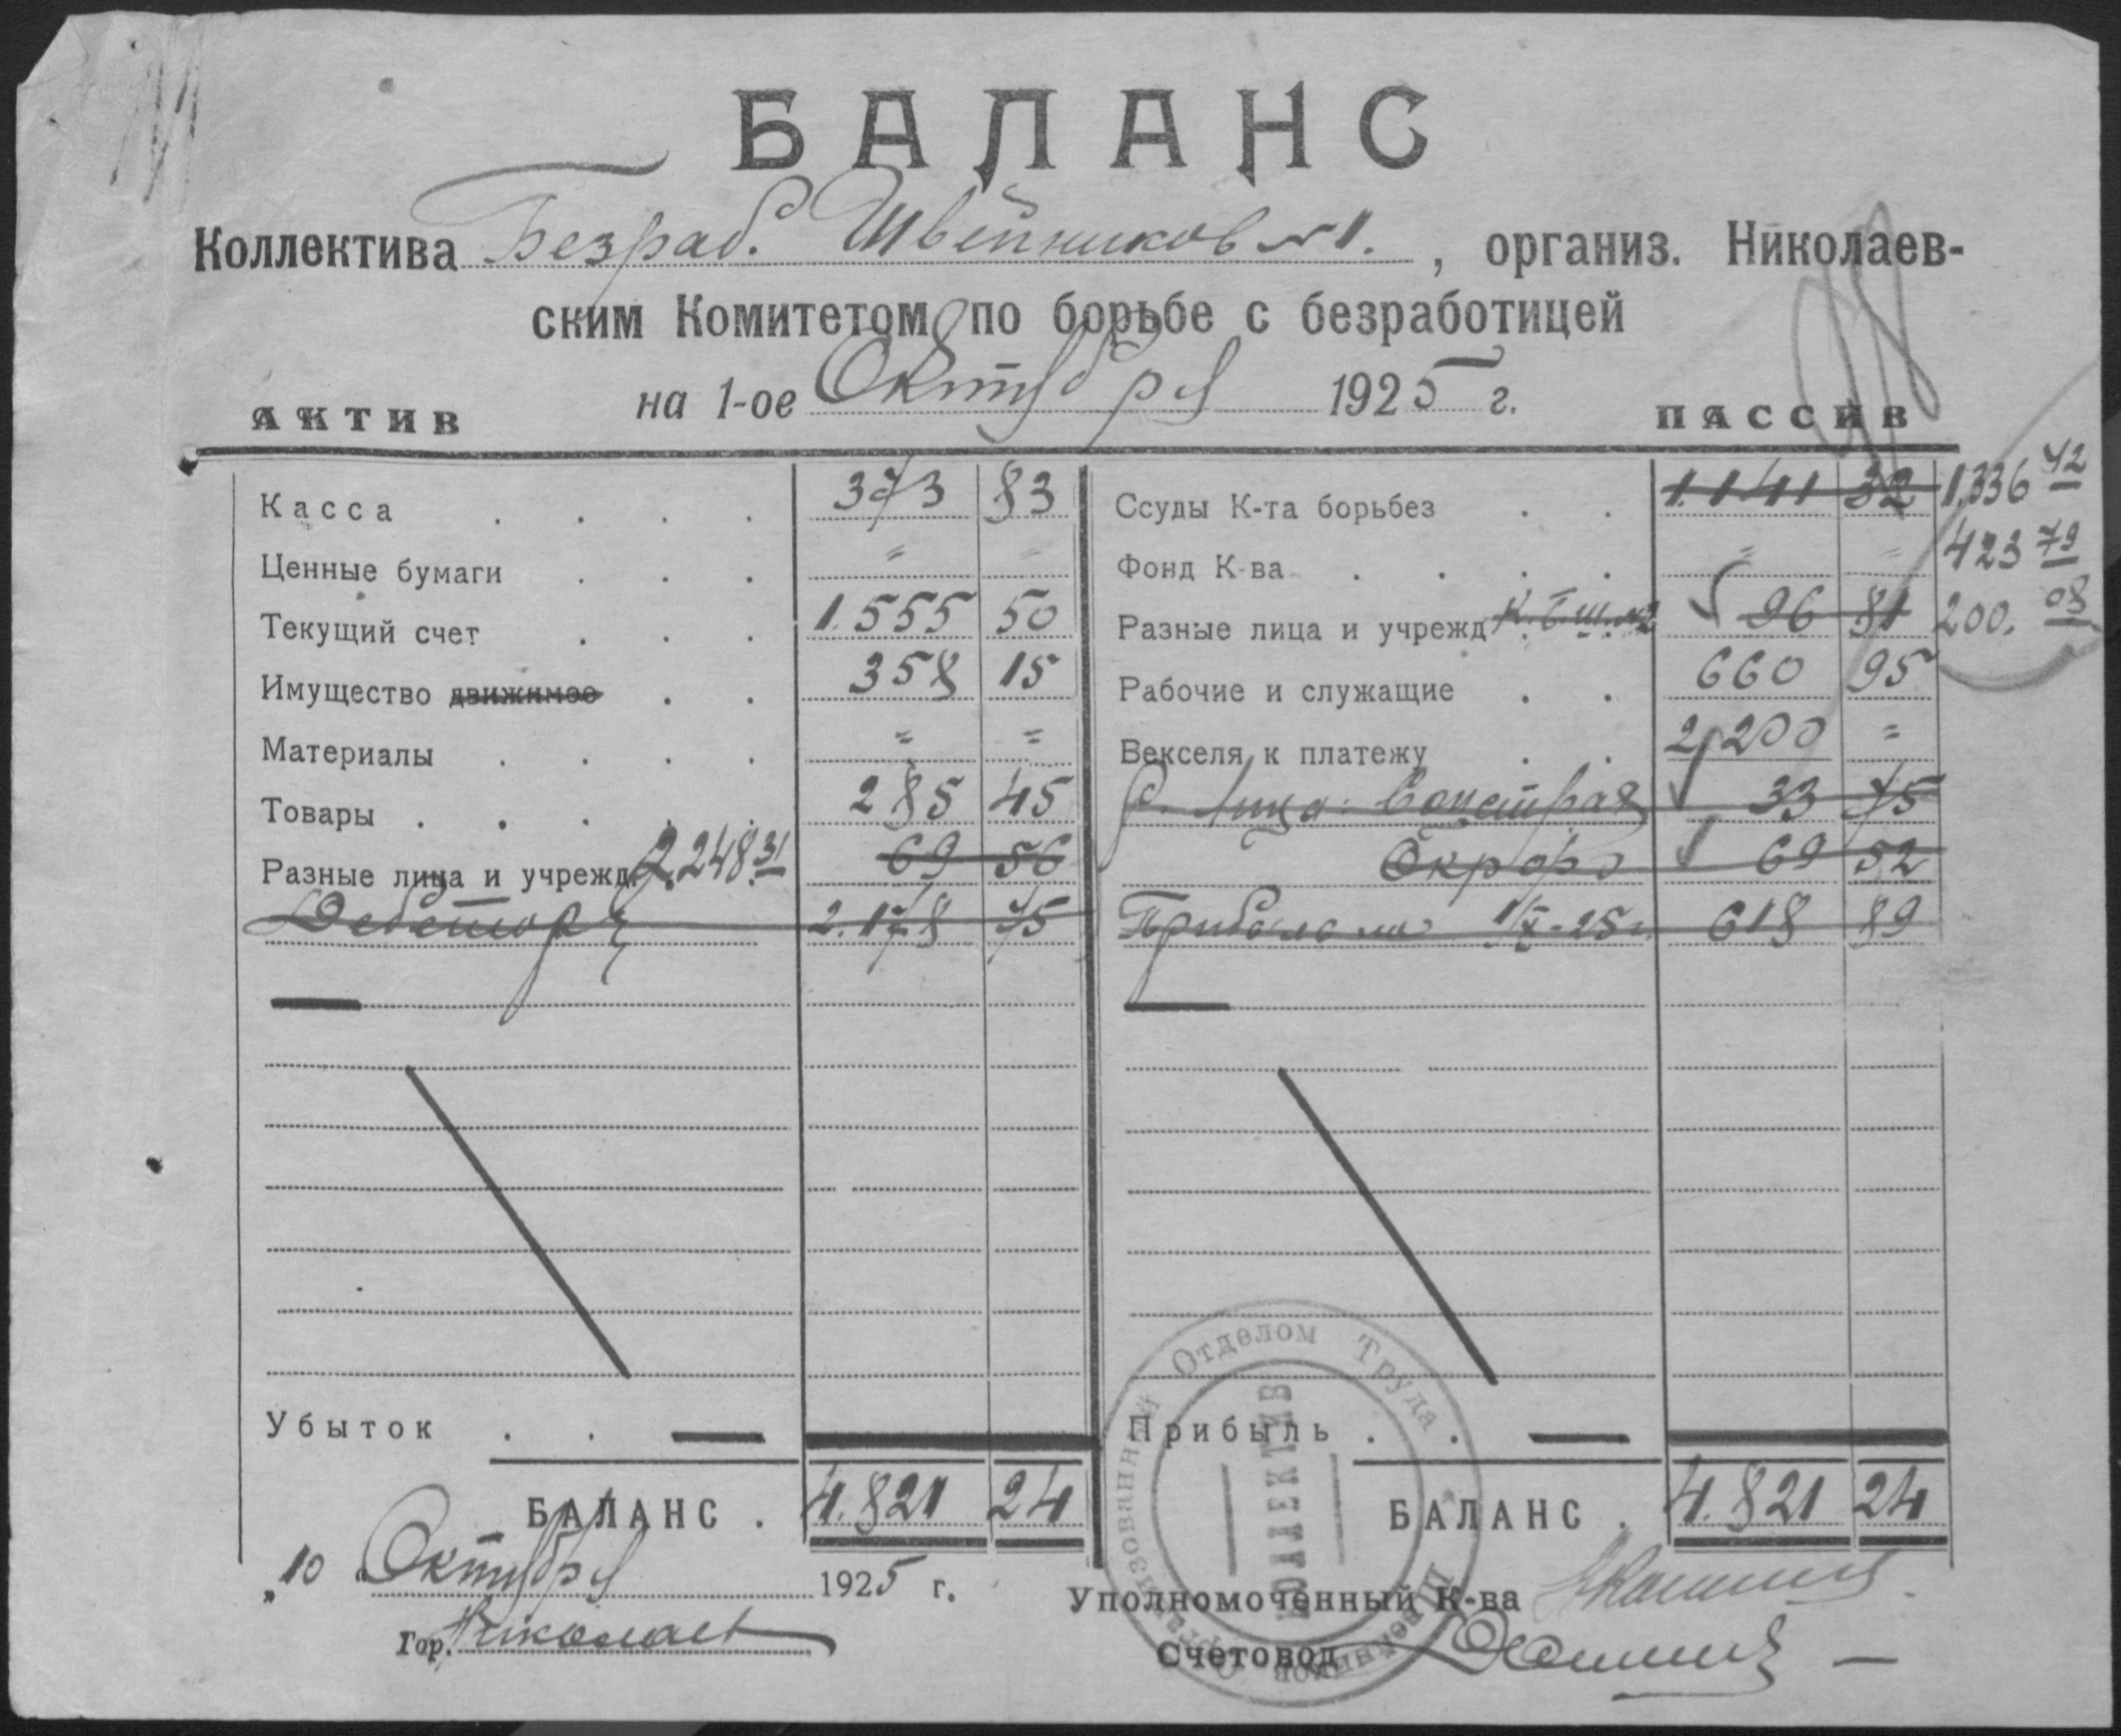 БАЛАНС
Коллектива Безраб. Швейников №1. , организ. Николаев-
ским Комитетом по борьбе с безработицей
на 1-ое Октября 1925 г.
АКТИВ ПАССИВ
Касса . . . . 373 83 Ссуды К-та борьбез . . 1.141 32 1.336 42
Ценные бумаги . . . " " Фонд К-ва . . . . " " 423 79
Текущий счет . . . 1.555 50 Разные лица и учрежд К.Б.Ш. №2 96 81 200. 08
Имущество движимое . . 358 15 Рабочие и служащие . . 660 95
Материалы . . . . " " Векселя к платежу . . 2.200 =
Товары . . . . . 285 45 Р. Лица: Соцстрах 33 75
Разные лица и учрежд. 2.248.31 69 56 69 52
Дебеторы 2.178 75 Прибыль на 1/X-25 г. 618 89
Убыток . . Прибыль . .
БАЛАНС . 4.821 24 БАЛАНС . 4.821 24
„10" Октября 1925 г. Уполномоченный К-ва
Гор. Николаев Счетовод
Организованный Отделом Труда
КОЛЛЕКТИВ
Швейников